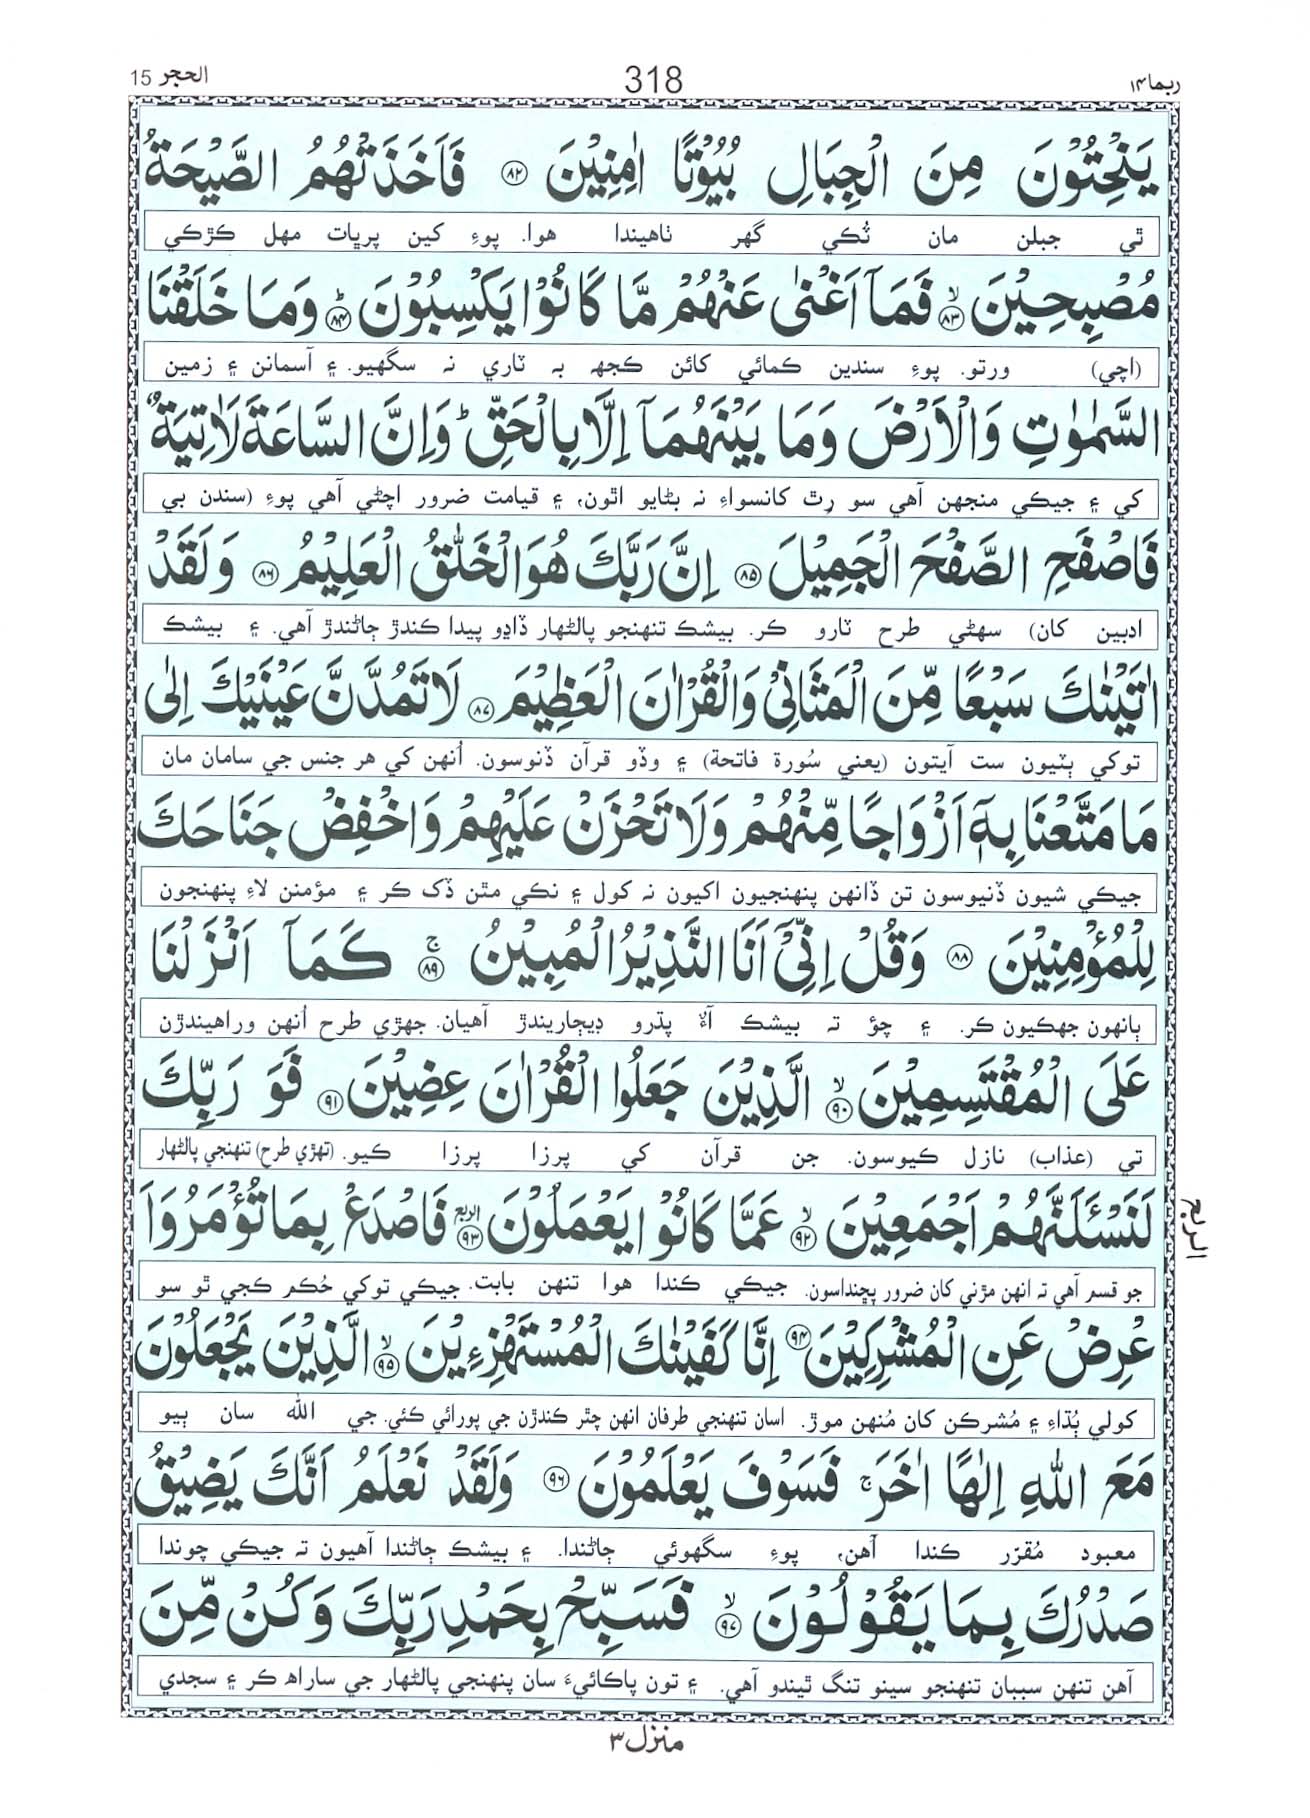 ربما ۱۴
318
الحجر 15
يَنْحِتُوْنَ مِنَ الْجِبَالِ بُيُوْتًا اٰمِنِيْنَ ﴿۸۲﴾ فَاَخَذَتْهُمُ الصَّيْحَةُ
ٿي جبلن مان ٽُڪي گهر ٺاهيندا هوا. پوءِ کين پرڀات مهل ڪڙڪي
مُصْبِحِيْنَ ۙ﴿۸۳﴾ فَمَاۤ اَغْنٰى عَنْهُمْ مَّا كَانُوْا يَكْسِبُوْنَ ؕ﴿۸۴﴾ وَمَا خَلَقْنَا
(اچي) ورتو. پوءِ سندين ڪمائي کائن ڪجهہ بہ ٽاري نہ سگهيو. ۽ آسمانن ۽ زمين
السَّمٰوٰتِ وَالْاَرْضَ وَمَا بَيْنَهُمَاۤ اِلَّا بِالْحَقِّ ؕ وَاِنَّ السَّاعَةَ لَاٰتِيَةٌ
کي ۽ جيڪي منجهن آهي سو رِٿ کانسواءِ نہ بڻايو اٿون، ۽ قيامت ضرور اچڻي آهي پوءِ (سندن بي
فَاصْفَحِ الصَّفْحَ الْجَمِيْلَ ﴿۸۵﴾ اِنَّ رَبَّكَ هُوَ الْخَلّٰقُ الْعَلِيْمُ ﴿۸۶﴾ وَلَقَدْ
ادبين کان) سهڻي طرح ٽارو ڪر. بيشڪ تنهنجو پالڻهار ڏاڍو پيدا ڪندڙ ڄاڻندڙ آهي. ۽ بيشڪ
اٰتَيْنٰكَ سَبْعًا مِّنَ الْمَثَانِيْ وَالْقُرْاٰنَ الْعَظِيْمَ ﴿۸۷﴾ لَا تَمُدَّنَّ عَيْنَيْكَ اِلٰى
توکي ٻٽيون ست آيتون (يعني سُورة فاتحة) ۽ وڏو قرآن ڏنوسون. اُنهن کي هر جنس جي سامان مان
مَا مَتَّعْنَا بِهٖۤ اَزْوَاجًا مِّنْهُمْ وَلَا تَحْزَنْ عَلَيْهِمْ وَاخْفِضْ جَنَاحَكَ
جيڪي شيون ڏنيوسون تن ڏانهن پنهنجيون اکيون نہ کول ۽ نڪي مٿن ڏک ڪر ۽ مؤمنن لاءِ پنهنجون
لِلْمُؤْمِنِيْنَ ﴿۸۸﴾ وَقُلْ اِنِّيْۤ اَنَا النَّذِيْرُ الْمُبِيْنُ ۚ﴿۸۹﴾ كَمَاۤ اَنْزَلْنَا
ٻانهون جهڪيون ڪر. ۽ چؤ تہ بيشڪ آءٌ پڌرو ڊيڄاريندڙ آهيان. جهڙي طرح اُنهن وراهيندڙن
عَلَى الْمُقْتَسِمِيْنَ ۙ﴿۹۰﴾ الَّذِيْنَ جَعَلُوا الْقُرْاٰنَ عِضِيْنَ ﴿۹۱﴾ فَوَ رَبِّكَ
تي (عذاب) نازل ڪيوسون. جن قرآن کي پرزا پرزا ڪيو. (تهڙي طرح) تنهنجي پالڻهار
لَنَسْـَٔلَنَّهُمْ اَجْمَعِيْنَ ۙ﴿۹۲﴾ عَمَّا كَانُوْا يَعْمَلُوْنَ الربع ﴿۹۳﴾ فَاصْدَعْ بِمَا تُؤْمَرُ وَاَ
الربع
جو قسم آهي تہ انهن مڙني کان ضرور پڇنداسون. جيڪي ڪندا هوا تنهن بابت. جيڪي توکي حُڪم ڪجي ٿو سو
عْرِضْ عَنِ الْمُشْرِكِيْنَ ﴿۹۴﴾ اِنَّا كَفَيْنٰكَ الْمُسْتَهْزِءِيْنَ ۙ﴿۹۵﴾ الَّذِيْنَ يَجْعَلُوْنَ
کولي ٻُڌاءِ ۽ مُشرڪن کان مُنهن موڙ. اسان تنهنجي طرفان انهن چٿر ڪندڙن جي پورائي ڪئي. جي الله سان ٻيو
مَعَ اللّٰهِ اِلٰهًا اٰخَرَ ۚ فَسَوْفَ يَعْلَمُوْنَ ﴿۹۶﴾ وَلَقَدْ نَعْلَمُ اَنَّكَ يَضِيْقُ
معبود مُقرّر ڪندا آهن، پوءِ سگهوئي ڄاڻندا. ۽ بيشڪ ڄاڻندا آهيون تہ جيڪي چوندا
صَدْرُكَ بِمَا يَقُوْلُوْنَ ۙ﴿۹۷﴾ فَسَبِّحْ بِحَمْدِ رَبِّكَ وَكُنْ مِّنَ
آهن تنهن سببان تنهنجو سينو تنگ ٿيندو آهي. ۽ تون پاڪائيءَ سان پنهنجي پالڻهار جي ساراھ ڪر ۽ سجدي
منزل ۳